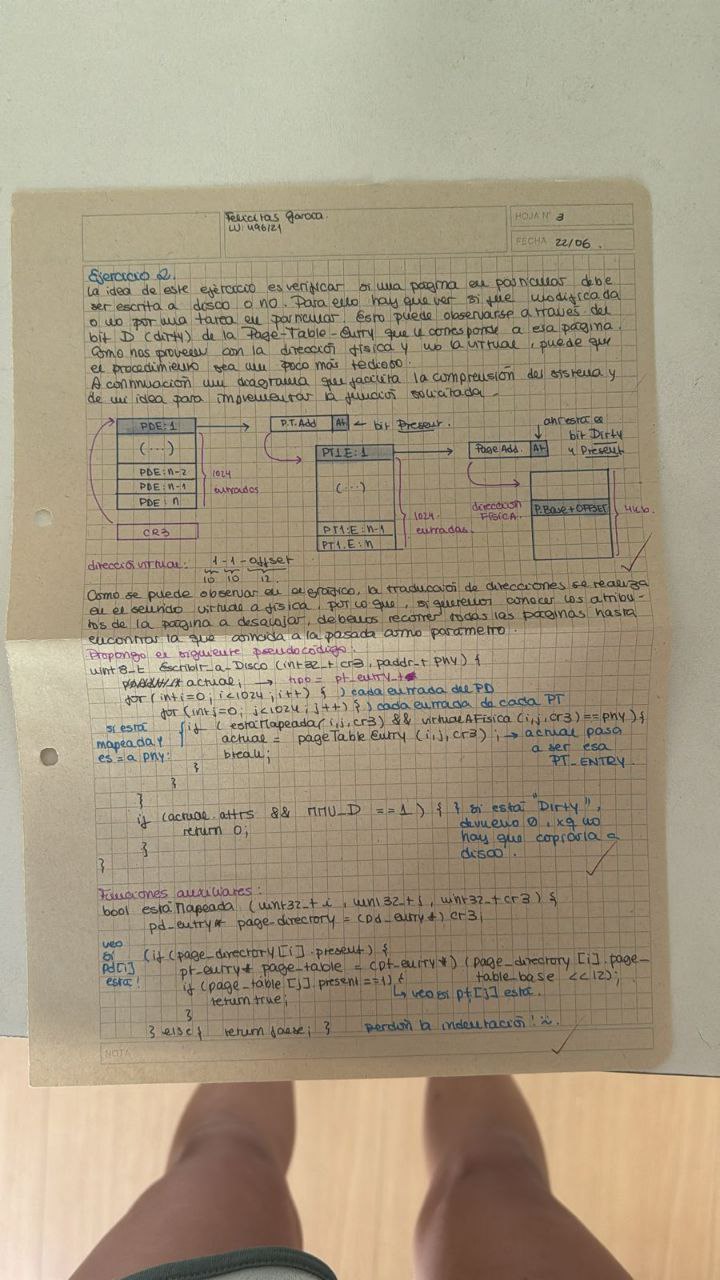 Felicitas Garoca.
LU: 496/21
HOJA N° 3
FECHA 22/06.
Ejercicio 2.
La idea de este ejercicio es verificar si una pagina en particular debe
ser escrita a disco o no. Para ello hay que ver si fue modificada
o no por una tarea en particular. Esto puede observarse a traves del
bit D (dirty) de la Page-Table-Entry que le corresponde a esa página.
Como nos proveen con la dirección física y no la virtual, puede que
el procedimiento sea un poco más tedioso.
A continuación un diagrama que facilita la comprensión del sistema y
de mi idea para implementar la función solicitada -
PDE: 1
(...)
PDE: n-2
PDE: n-1
PDE: n
1024 entradas
CR3
P.T. Add
At
← bit Present.
PT1E: 1
(...)
PT1: E: n-1
PT1. E: n
1024 entradas.
Page Add.
At
ahí está el
bit Dirty
y Present
dirección
FÍSICA.
P.Base + OFFSET
4kb.
dirección virtual: 1 - 1 - offset
10 10 12.
Como se puede observar en el gráfico, la traducción de direcciones se realiza
en el sentido virtual a física, por lo que, si queremos conocer los atribu-
tos de la página a desalojar, debemos recorrer todas las páginas hasta
encontrar la que coincida a la pasada como parámetro.
Propongo el siguiente pseudocódigo:
uint8_t Escribir_a_Disco (int32_t cr3, paddr_t phy) {
actual; → tipo = pt_entry_t
for (int i=0; i<1024; i++) { } cada entrada del PD
for (int j=0; j<1024; j++) { } cada entrada de cada PT
si está
mapeada y
es = a phy:
if ( estaMapeada(i,j,cr3) && virtualAFisica (i,j,cr3)==phy) {
actual = pageTableEntry (i,j,cr3); → actual pasa
a ser esa
PT_ENTRY
break;
}
}
}
if (actual.attrs && MMU_D == 1) { } si está "Dirty",
devuelvo 0, xq no
hay que copiarla a
disco.
return 0;
}
}
Funciones auxiliares:
bool estáMapeada (uint32_t i, uint32_t j, uint32_t cr3) {
pd_entry* page_directory = (pd_entry*) cr3;
veo
si
pd[i]
está!
(if (page_directory [i].present) {
pt_entry* page_table = (pt_entry*) (page_directory [i].page_
table_base <<12);
if (page_table [j].present ==1) {
↳ veo si pt[j] está.
return true;
}
} else { return false; } perdón la indentación! ü.
NOTA